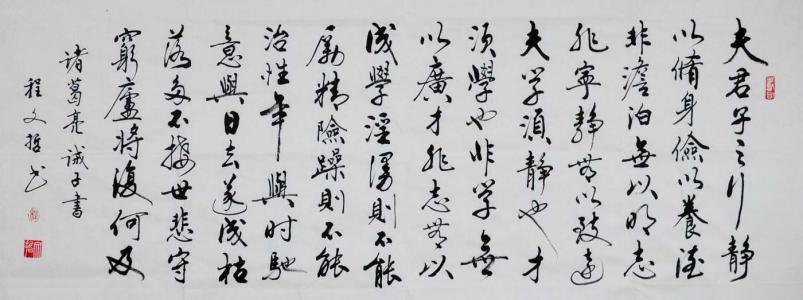 夫君子之行静
以脩身儉以養德
非澹泊無以明志
非寧静無以致遠
夫学須静也才
須學也非学無
以廣才非志無以
成學淫漫則不能
勵精險躁則不能
治性年與时馳
意與日去遂成枯
落多不接世悲守
窮廬將復何及
諸葛亮诫子書
程文哲书